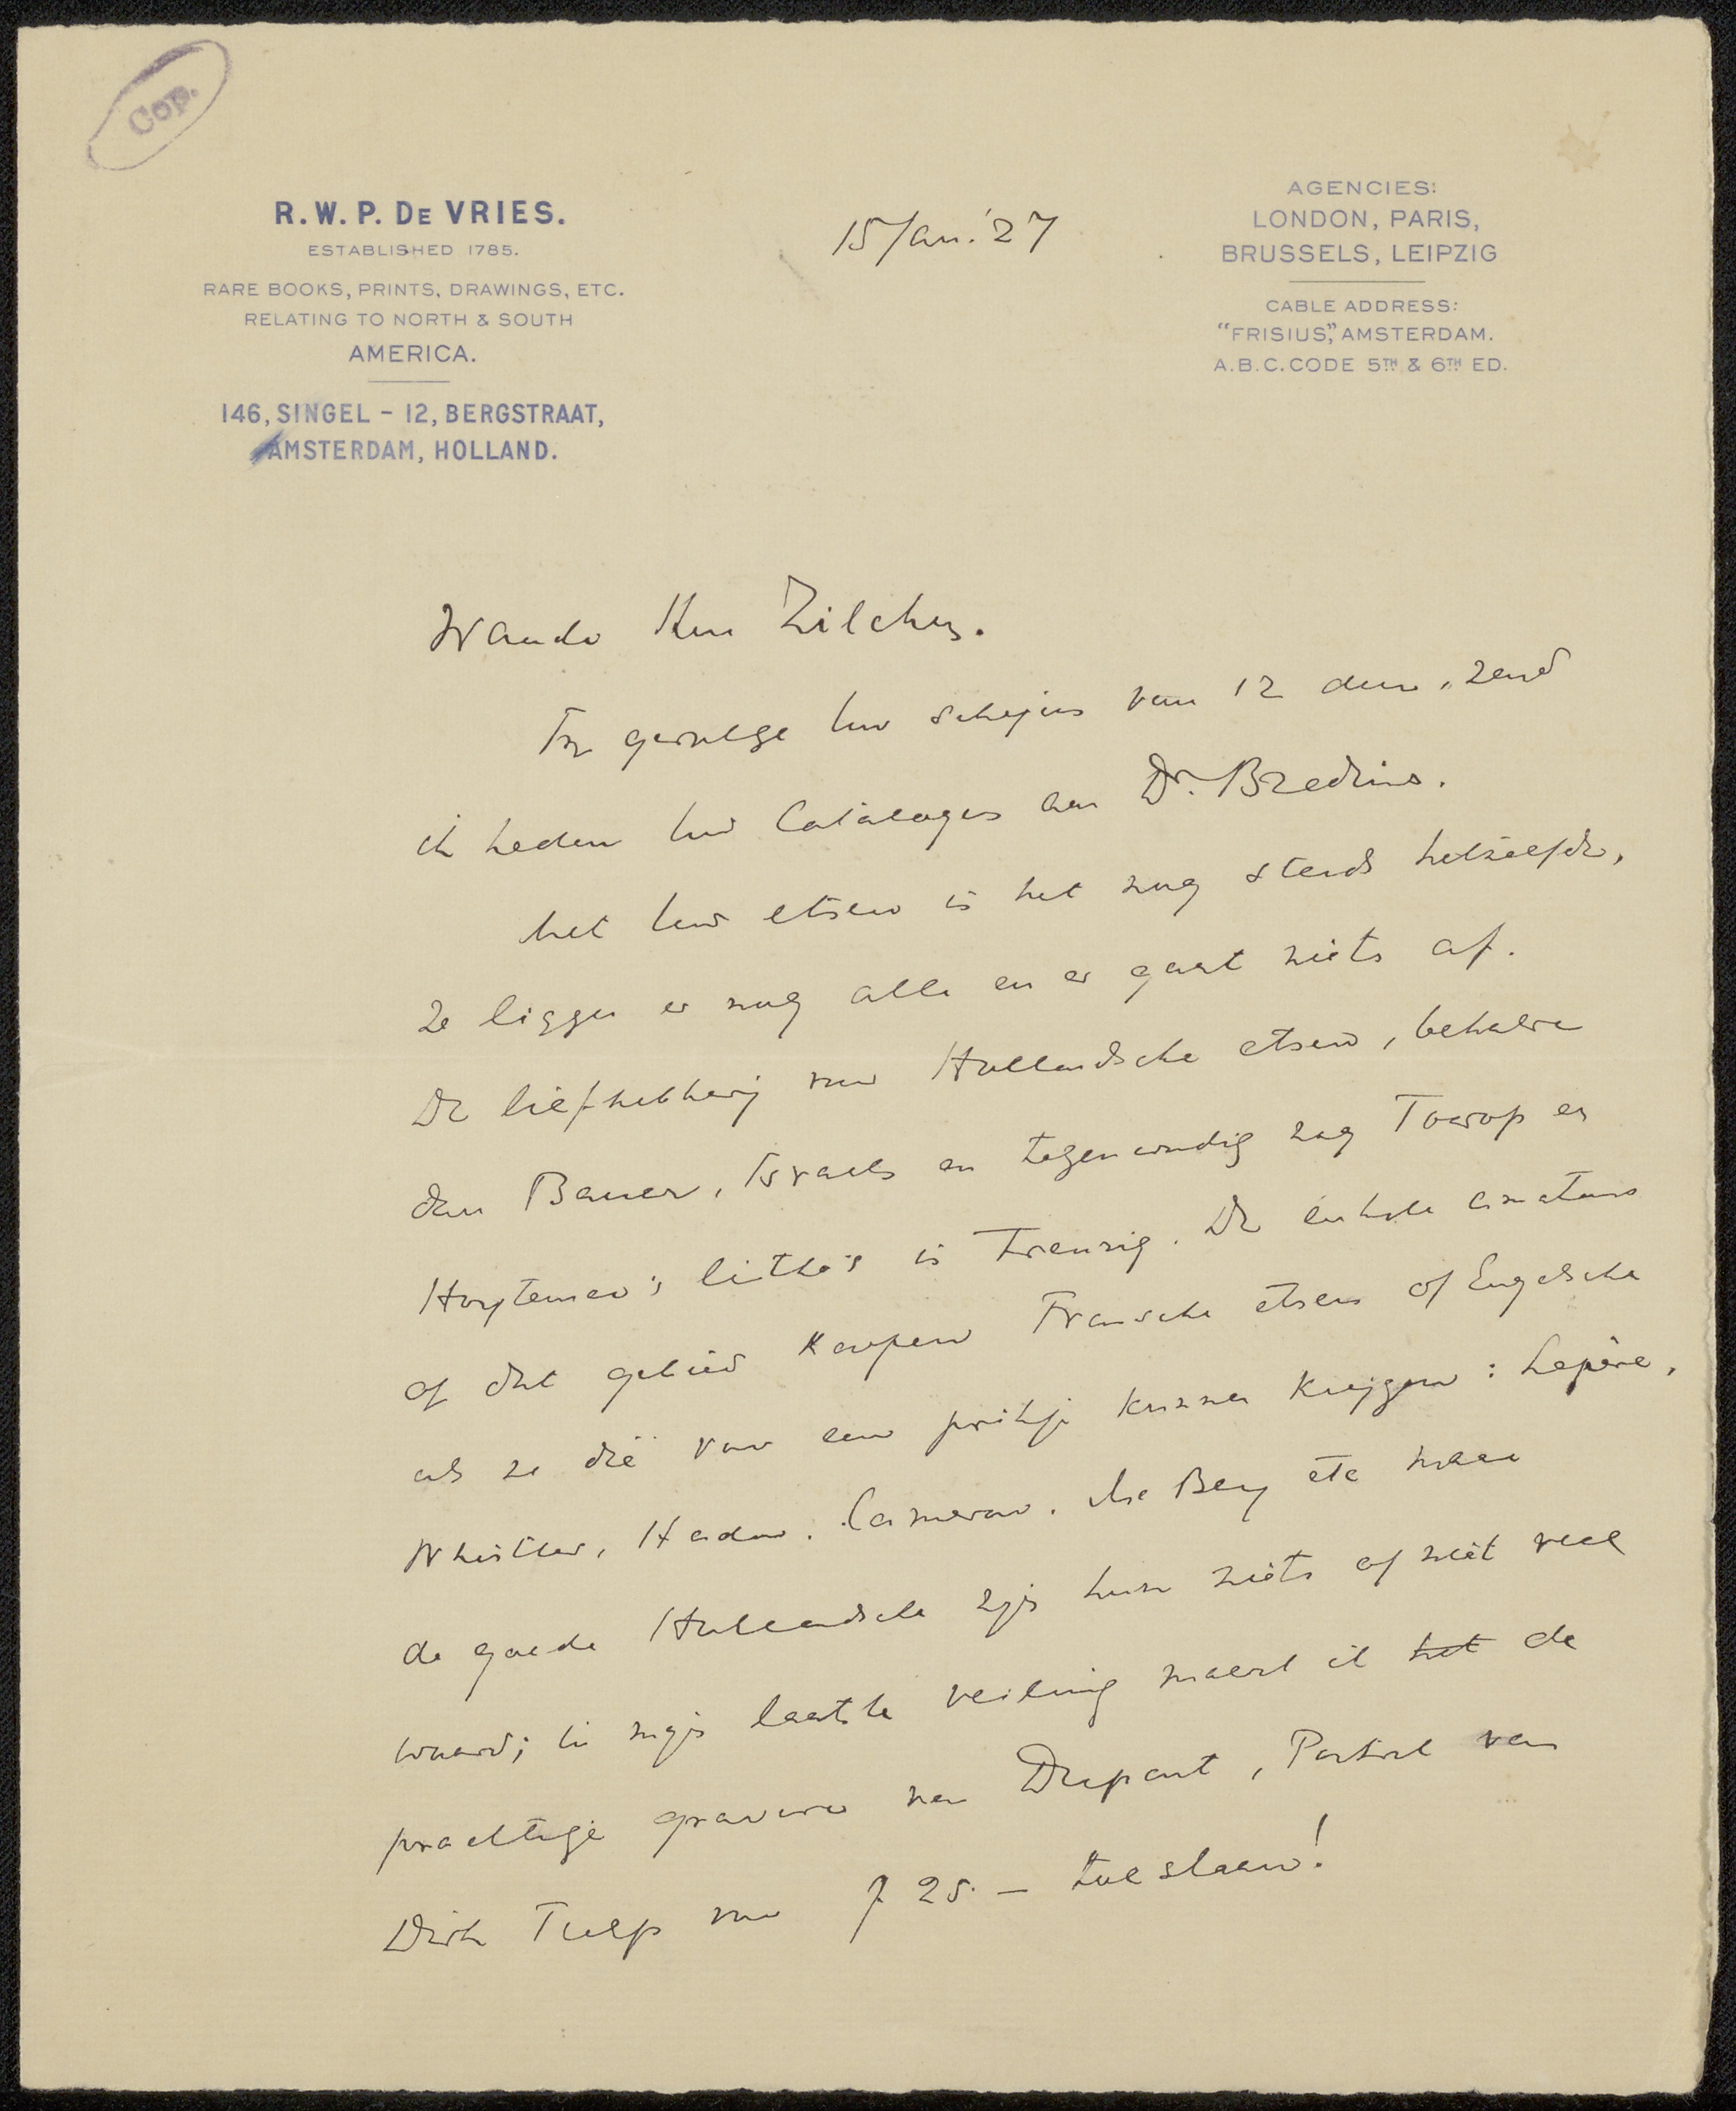 Cop.
R. W. P. DE VRIES.
ESTABLISHED 1785.
RARE BOOKS, PRINTS, DRAWINGS, ETC.
RELATING TO NORTH & SOUTH
AMERICA.
146, SINGEL – 12, BERGSTRAAT,
AMSTERDAM, HOLLAND.
15 Jan. '27
AGENCIES:
LONDON, PARIS,
BRUSSELS, LEIPZIG
CABLE ADDRESS:
"FRISIUS", AMSTERDAM.
A.B.C. CODE 5TH & 6TH ED.
Waarde Heer Zilcken.
In gevolge Uw schrijven van 12 dezer, zend
ik heden Uw Catalogus aan Dr. Bredius.
Met Uw etsen is het nog steeds hetzelfde,
ze liggen er nog alle en er gaat niets af.
De liefhebberij voor Hollandsche etsen, behalve
dan Bauer, Israels en tegenwoordig nog Toorop en
Hoytema's litho's is treurig. De enkele amateurs
op dat gebied koopen Fransche etsen of Engelsche
als ze die voor een prikje kunnen krijgen: Lepère,
Whistler, Haden, Cameron, Mc Bey etc maar
de goede Hollandsche zijn hun niets of niet veel
waard; in mijn laatste veiling moest ik het de
prachtige gravure van Dupont, Portret van
Dirk Tulp voor f 25.— toeslaan!